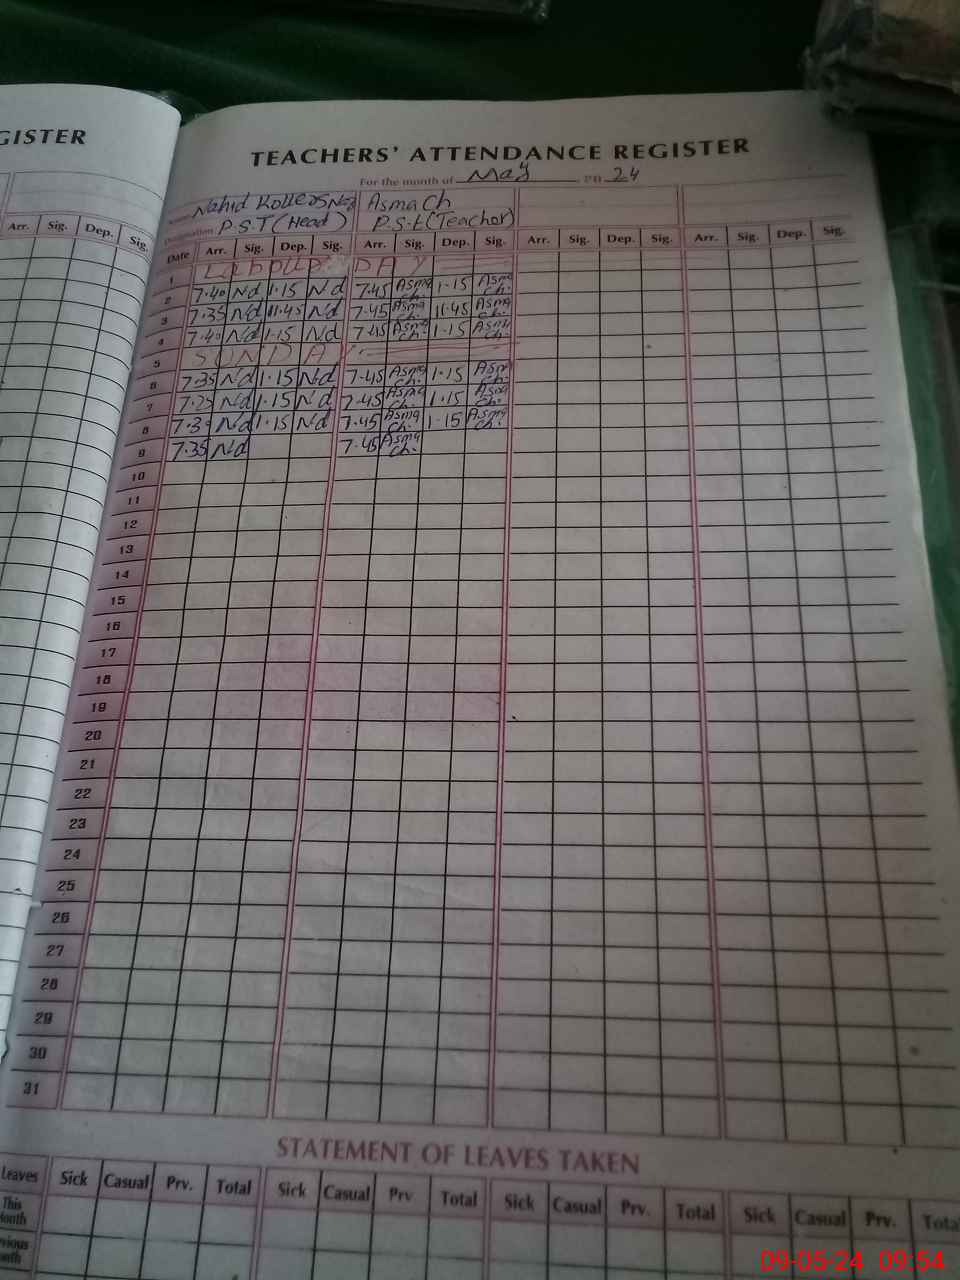 GISTER
TEACHERS' ATTENDANCE REGISTER
For the month of May 24
Nahid Asma Ch
Designation P.S.T (Head) P.S.t (Teacher)
Arr. Sig. Dep. Sig.
Date Arr. Sig. Dep. Sig. Arr. Sig. Dep. Sig. Arr. Sig. Dep. Sig. Arr. Sig. Dep. Sig.
1 Labour DAY
2 7.40 Nd 1.15 Nd 7.45 Asma Ch. 1-15 Asma Ch.
3 7.35 Nd 11.45 Nd 7.45 Asma Ch. 11.45 Asma Ch.
4 7.40 Nd 1.15 Nd 7.45 Asma Ch. 1.15 Asma Ch.
5 SUNDAY
6 7.35 Nd 1.15 Nd 7.45 Asma Ch. 1.15 Asma Ch.
7 Nd 1.15 Nd 7.45 Asma Ch. 1.15 Asma Ch.
8 Nd 1.15 Nd 7.45 Asma Ch. 1-15 Asma Ch.
9 7.35 Nd 7.45 Asma Ch.
10
11
12
13
14
15
16
17
18
19
20
21
22
23
24
25
26
27
28
29
30
31
STATEMENT OF LEAVES TAKEN
Leaves Sick Casual Prv. Total Sick Casual Prv Total Sick Casual Prv. Total Sick Casual Prv. Tota
This
onth
vious
onth
09-05-24 09:54